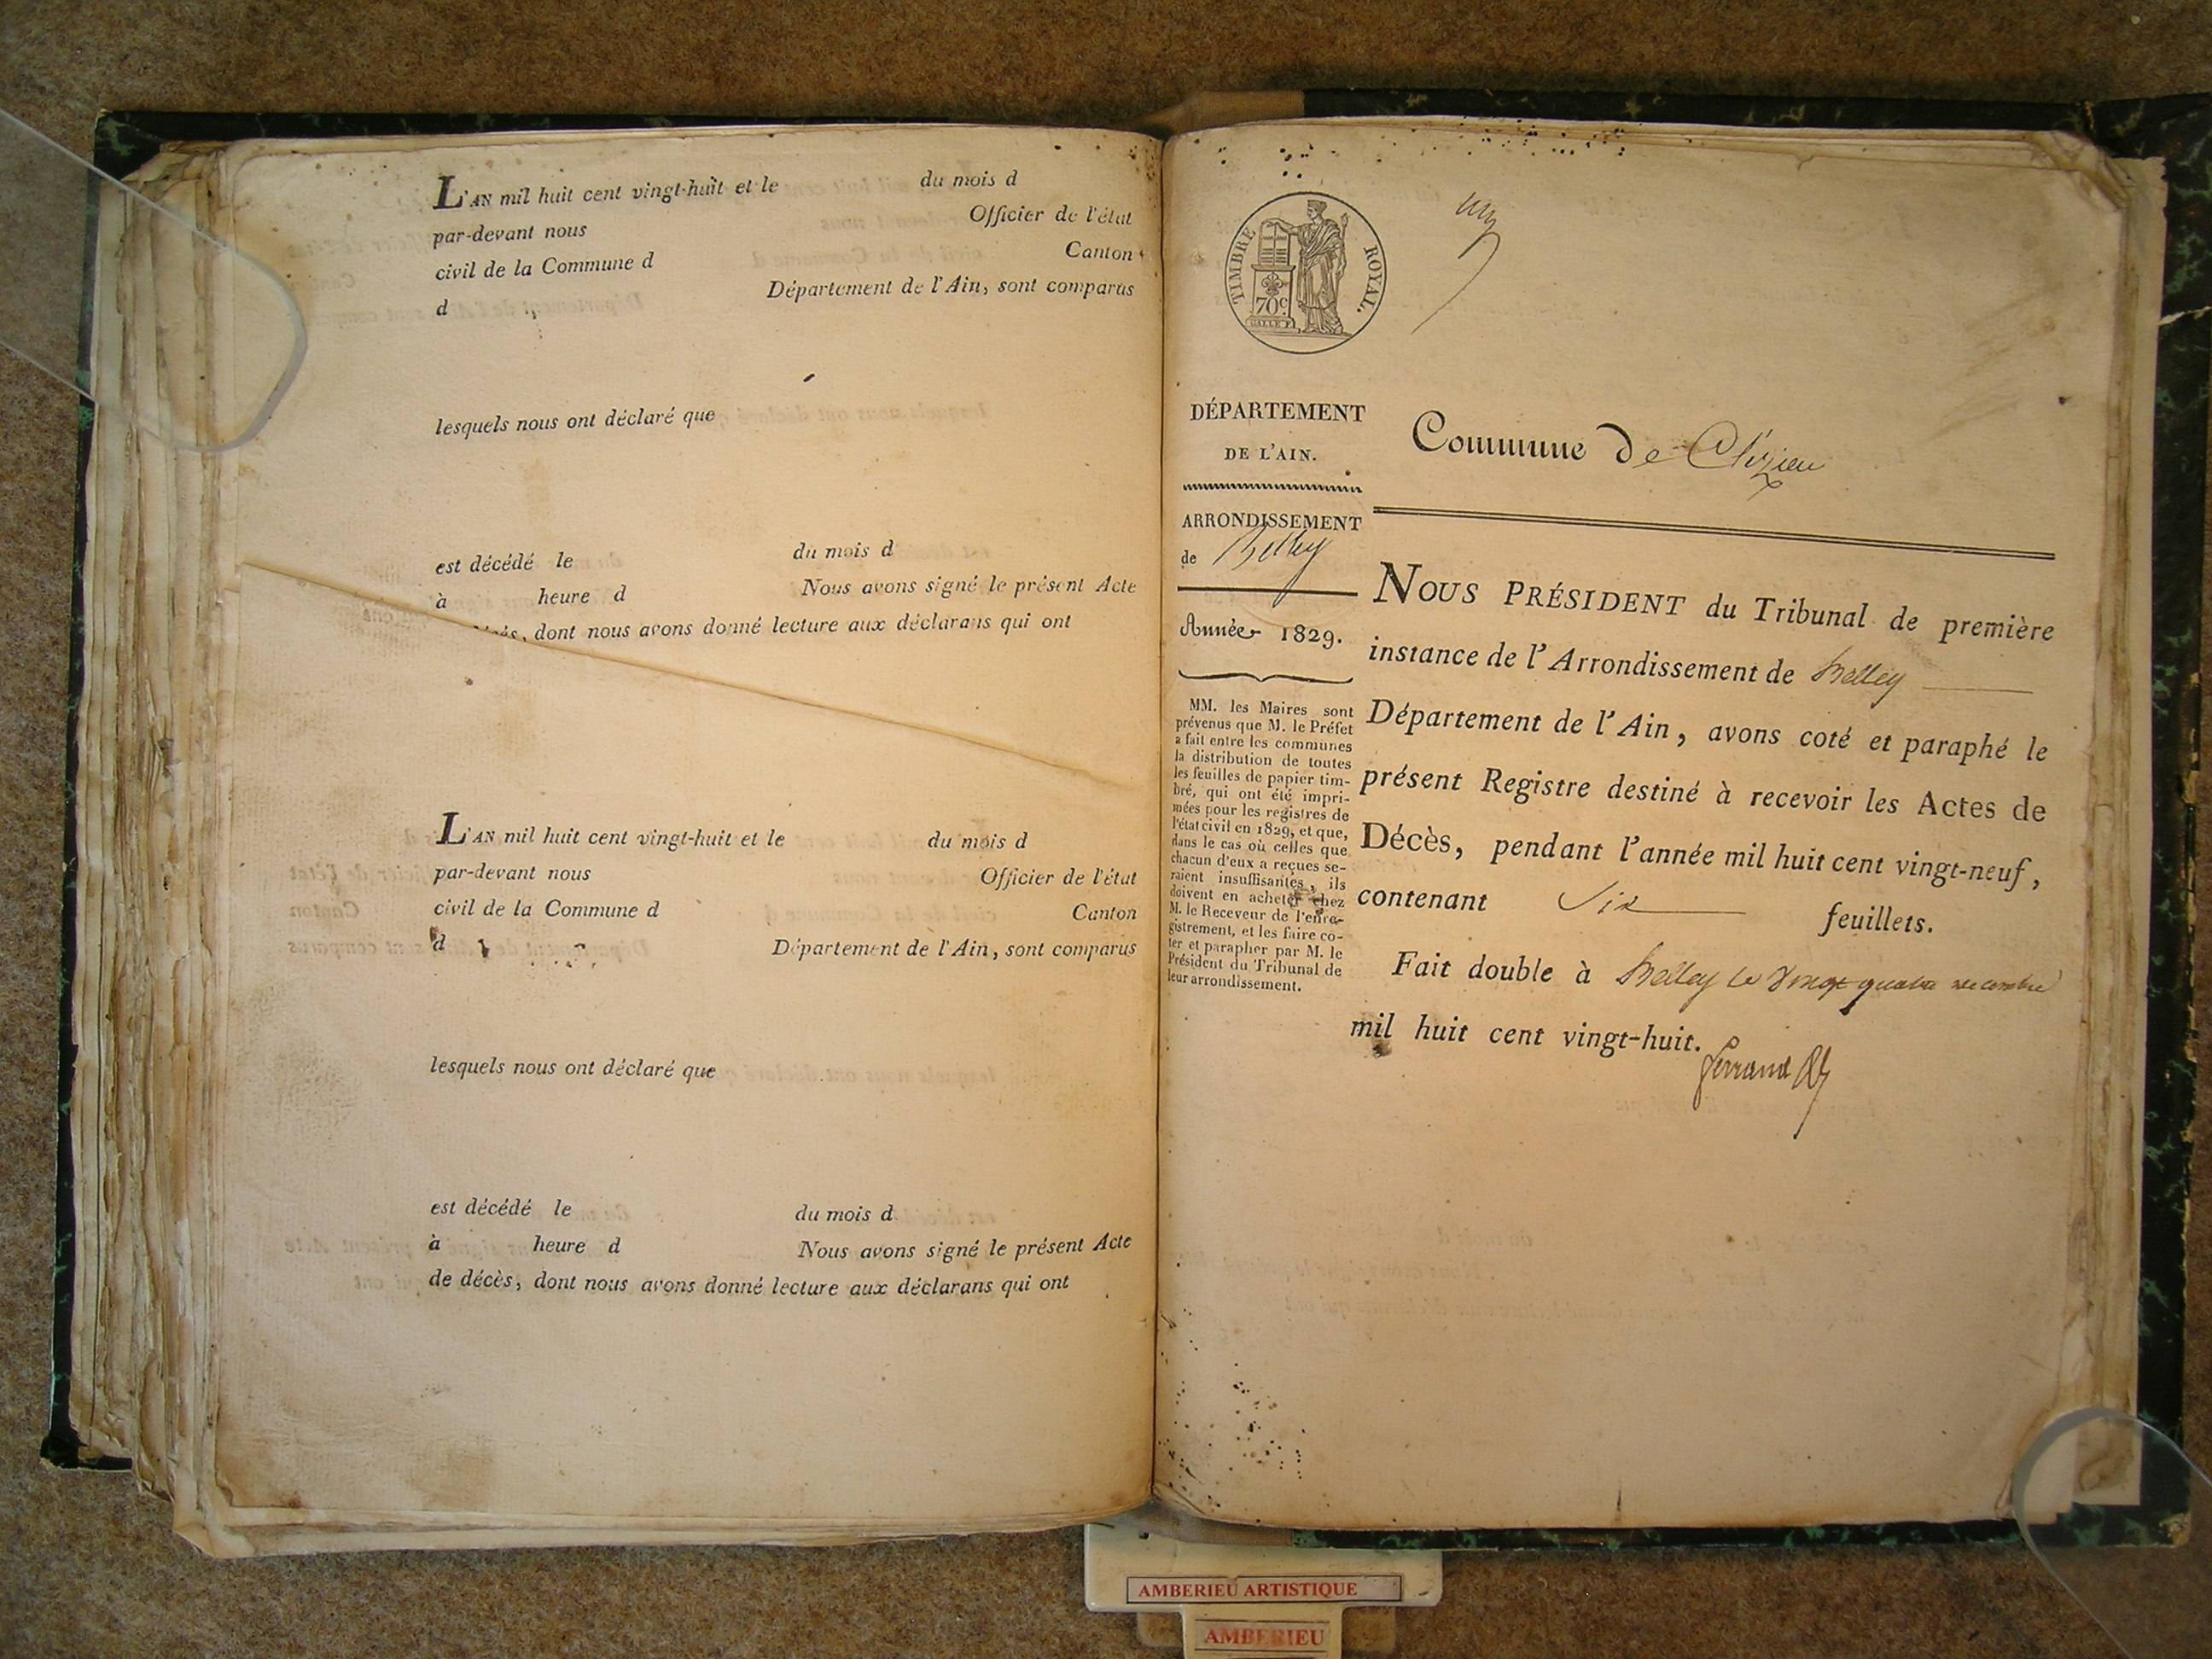 L'AN mil huit cent vingt-huit et le du mois d
par-devant nous Officier de l'état
civil de la Commune d Canton
d Département de l'Ain, sont comparus
lesquels nous ont déclaré que
est décédé le du mois d
à heure d Nous avons signé le présent Acte
dont nous avons donné lecture aux déclarans qui ont
L'AN mil huit cent vingt-huit et le du mois d
par-devant nous Officier de l'état
civil de la Commune d Canton
d Département de l'Ain, sont comparus
lesquels nous ont déclaré que
est décédé le du mois d
à heure d Nous avons signé le présent Acte
de décès, dont nous avons donné lecture aux déclarans qui ont
TIMBRE ROYAL.
70c
un
DÉPARTEMENT
DE L'AIN.
ARRONDISSEMENT
de Belley
Année 1829.
MM. les Maires sont
prévenus que M. le Préfet
a fait entre les communes
la distribution de toutes
les feuilles de papier tim-
bré, qui ont été impri-
mées pour les registres de
l'état civil en 1829, et que,
dans le cas où celles que
chacun d'eux a reçues se-
raient insuffisantes, ils
doivent en acheter chez
M. le Receveur de l'enre-
gistrement, et les faire co-
ter et parapher par M. le
Président du Tribunal de
leur arrondissement.
Commune de
NOUS PRÉSIDENT du Tribunal de première
instance de l'Arrondissement de Belley
Département de l'Ain, avons coté et paraphé le
présent Registre destiné à recevoir les Actes de
Décès, pendant l'année mil huit cent vingt-neuf,
contenant Six feuillets.
Fait double à Belley le vingt quatre
mil huit cent vingt-huit.
AMBERIEU ARTISTIQUE
AMBERIEU